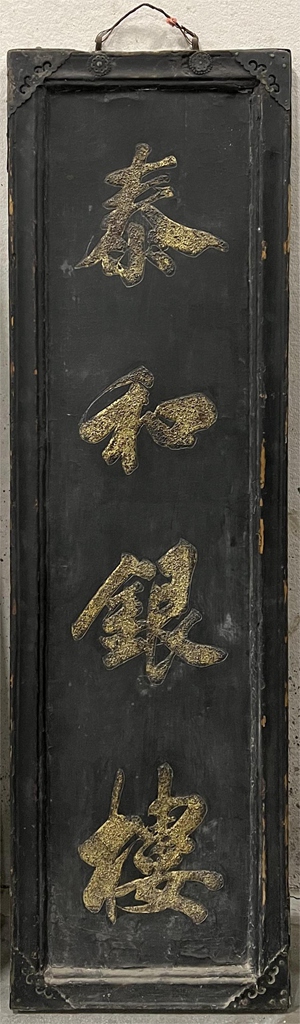 泰和銀樓